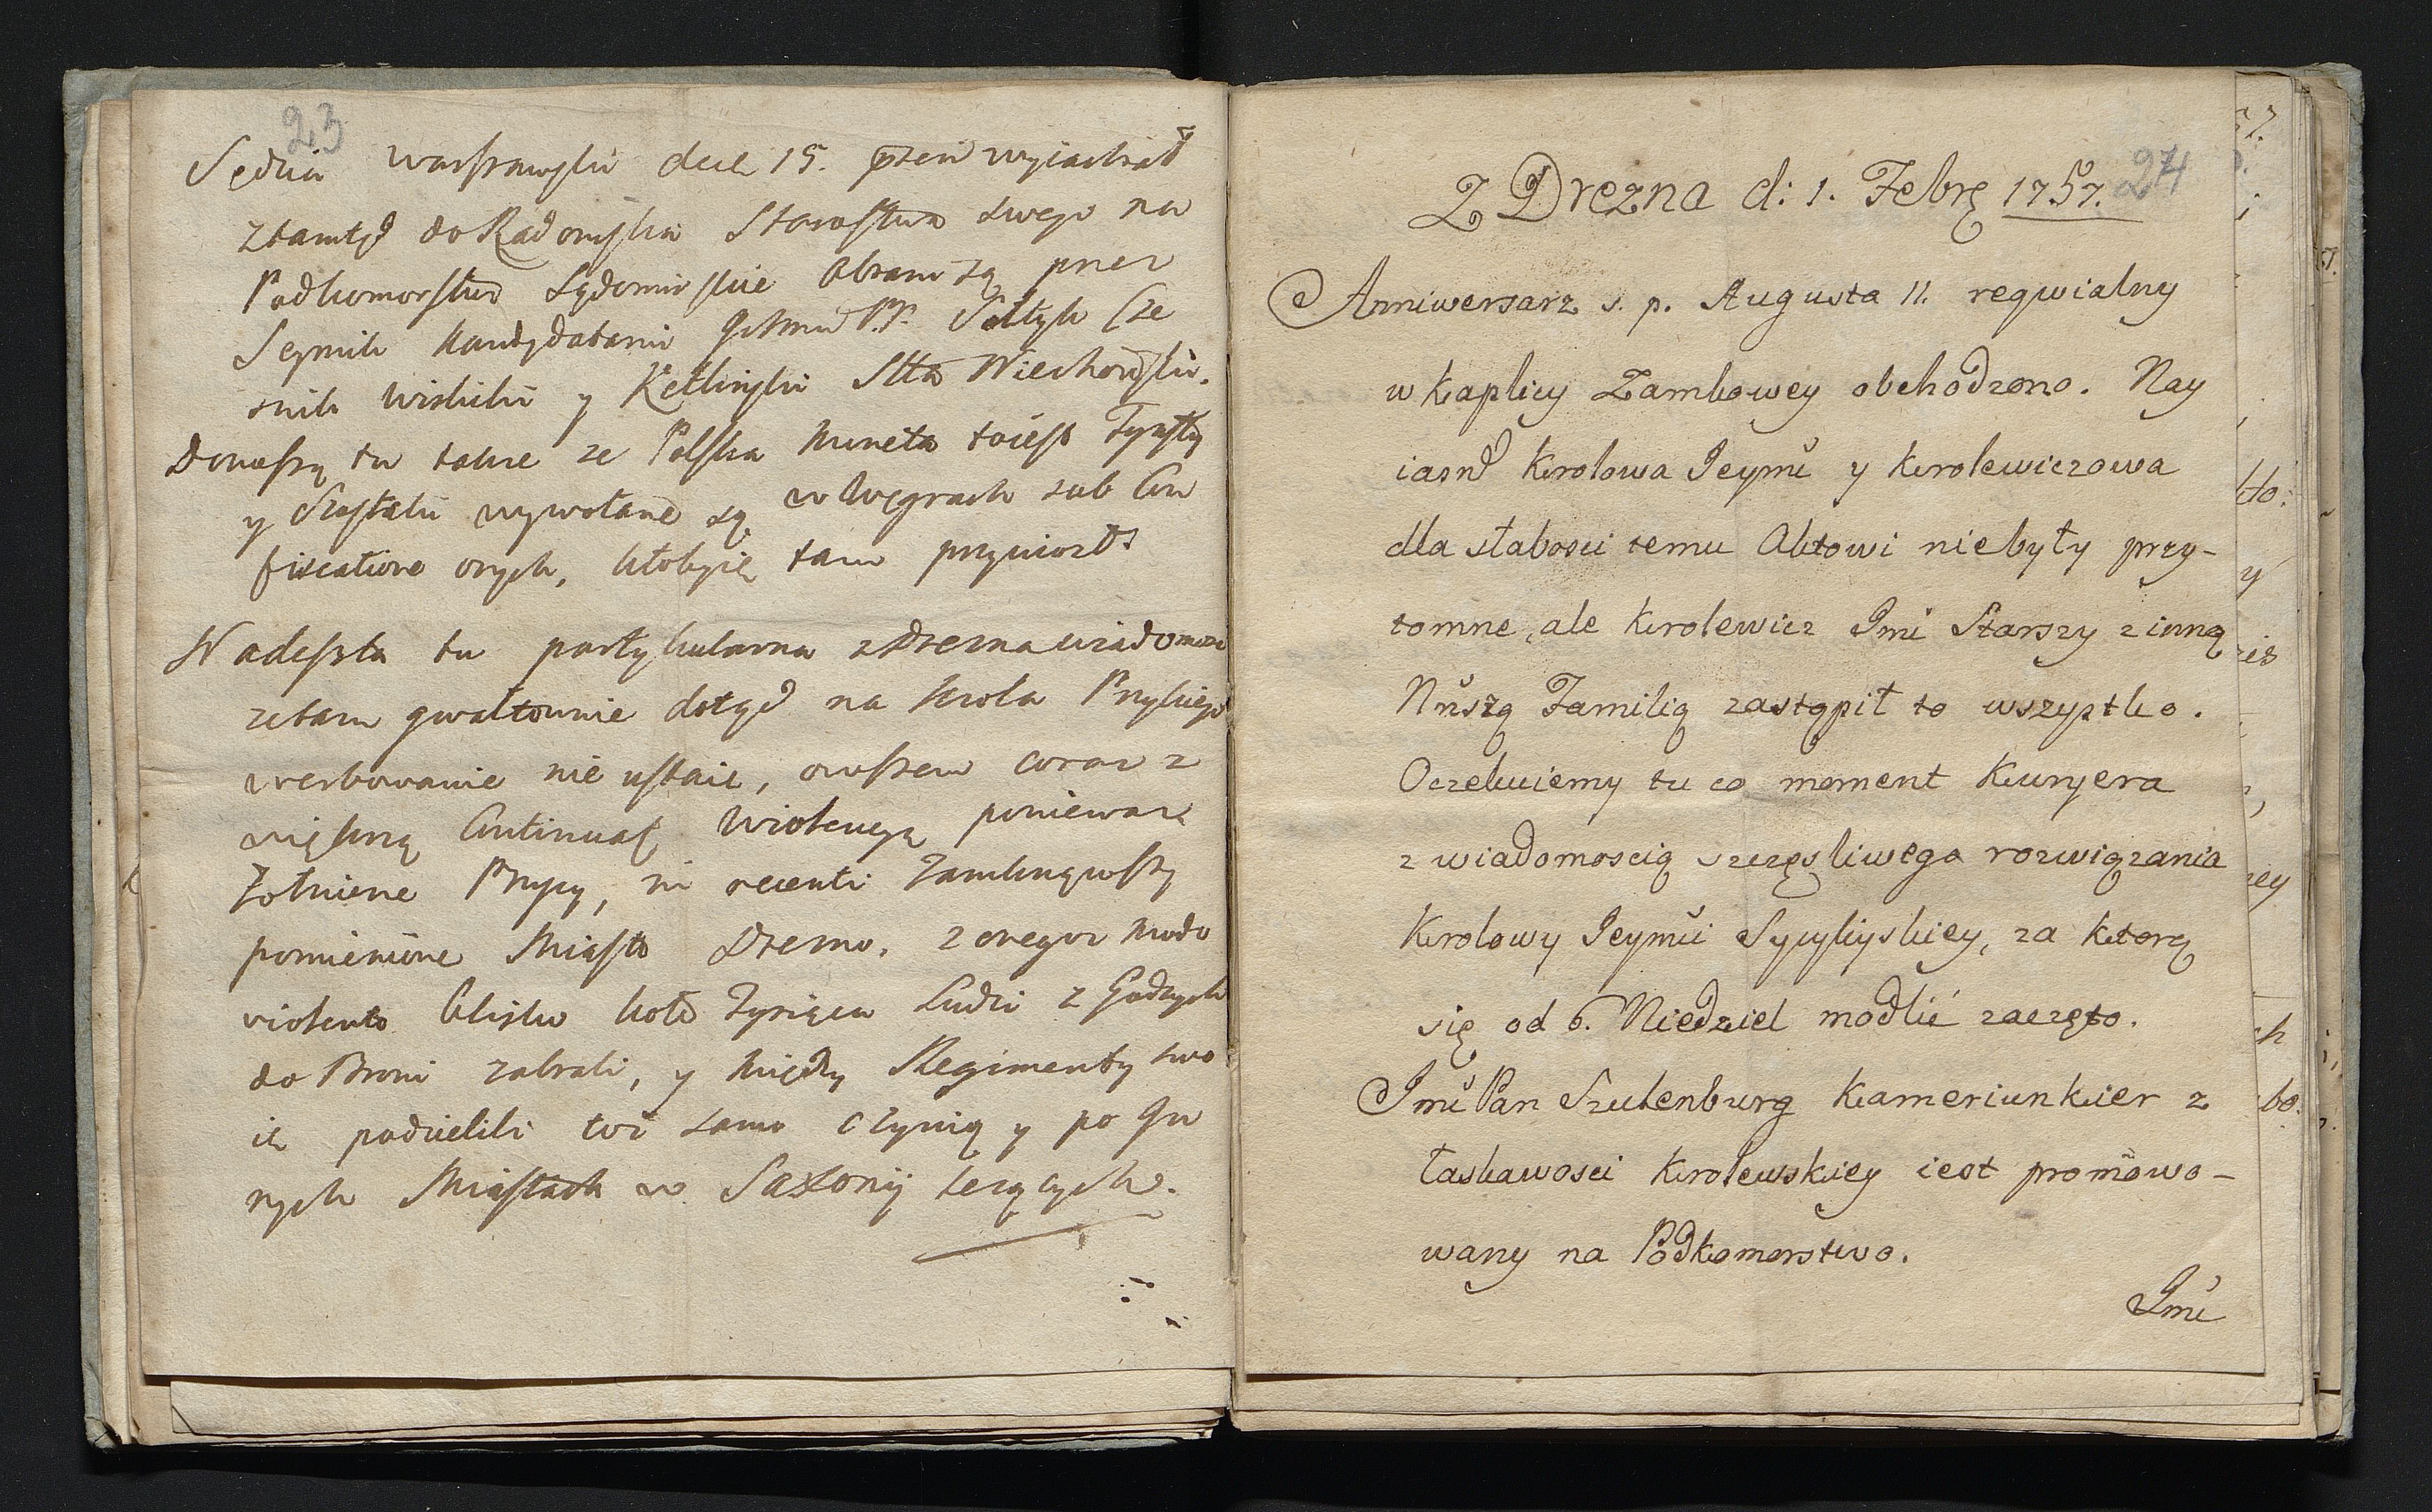 23
Sędzia Warszawski die 15. pzen wyiachał
ztamtąd do Radomska Starostwa swego na
Podkomorstwo Sędomirskie obrani są przez
Seymik Kandydatami Ichmć PP. Sołtyk Cze
snik Wislicki y Ketlinski Stta
Donoszą tu także ze Polska Moneta toiest Tynfy
y Szostaki wywołane są w Węgrach sub Con
fiscatione onych, ktobyie tam przyniozł.
Nadeszła tu partykularna z Drezna wiadomosc
ze tam gwałtownie dotąd na Krola Pruskiego
werbowanie nie ustaie, owszem coraz z
większą Continuat Wiolencyą poniewaz
Zołnierze Prusy, in recenti zamknąwszy
pomienione Miasto Drezno, z onegoz modo
violento blisko koło Tysiąca Ludzi z Godnych
do Broni zabrali, y między Regimenty swo
ie podzielili toz samo czynią y po In
nych Miastach w Saxonij lezących.
24
Z Drezna d: 1. Febrę 1757.
Anniwersarz s. p. Augusta II. reqwialny
w Kaplicy Zamkowey obchodzono. Nay
iasn Krolowa Jeymć y Krolewiczowa
dla słabosci temu Aktowi niebyły przy-
tomne, ale Krolewicz Jmć Starszy z inną
Nszszą Familią zastąpił to wszystko.
Oczekuiemy tu co moment Kuryera
z wiadomoscią szczęsliwego rozwiązania
Krolowy Jeymći Sycyliyskiey, za ktorą
się od 6. Niedziel modlić zaczęto.
Jmć Pan Szulenburg Kameriunkier z
łaskawosci Krolewskiey iest promowo-
wany na Podkomorstwo.
Jmć